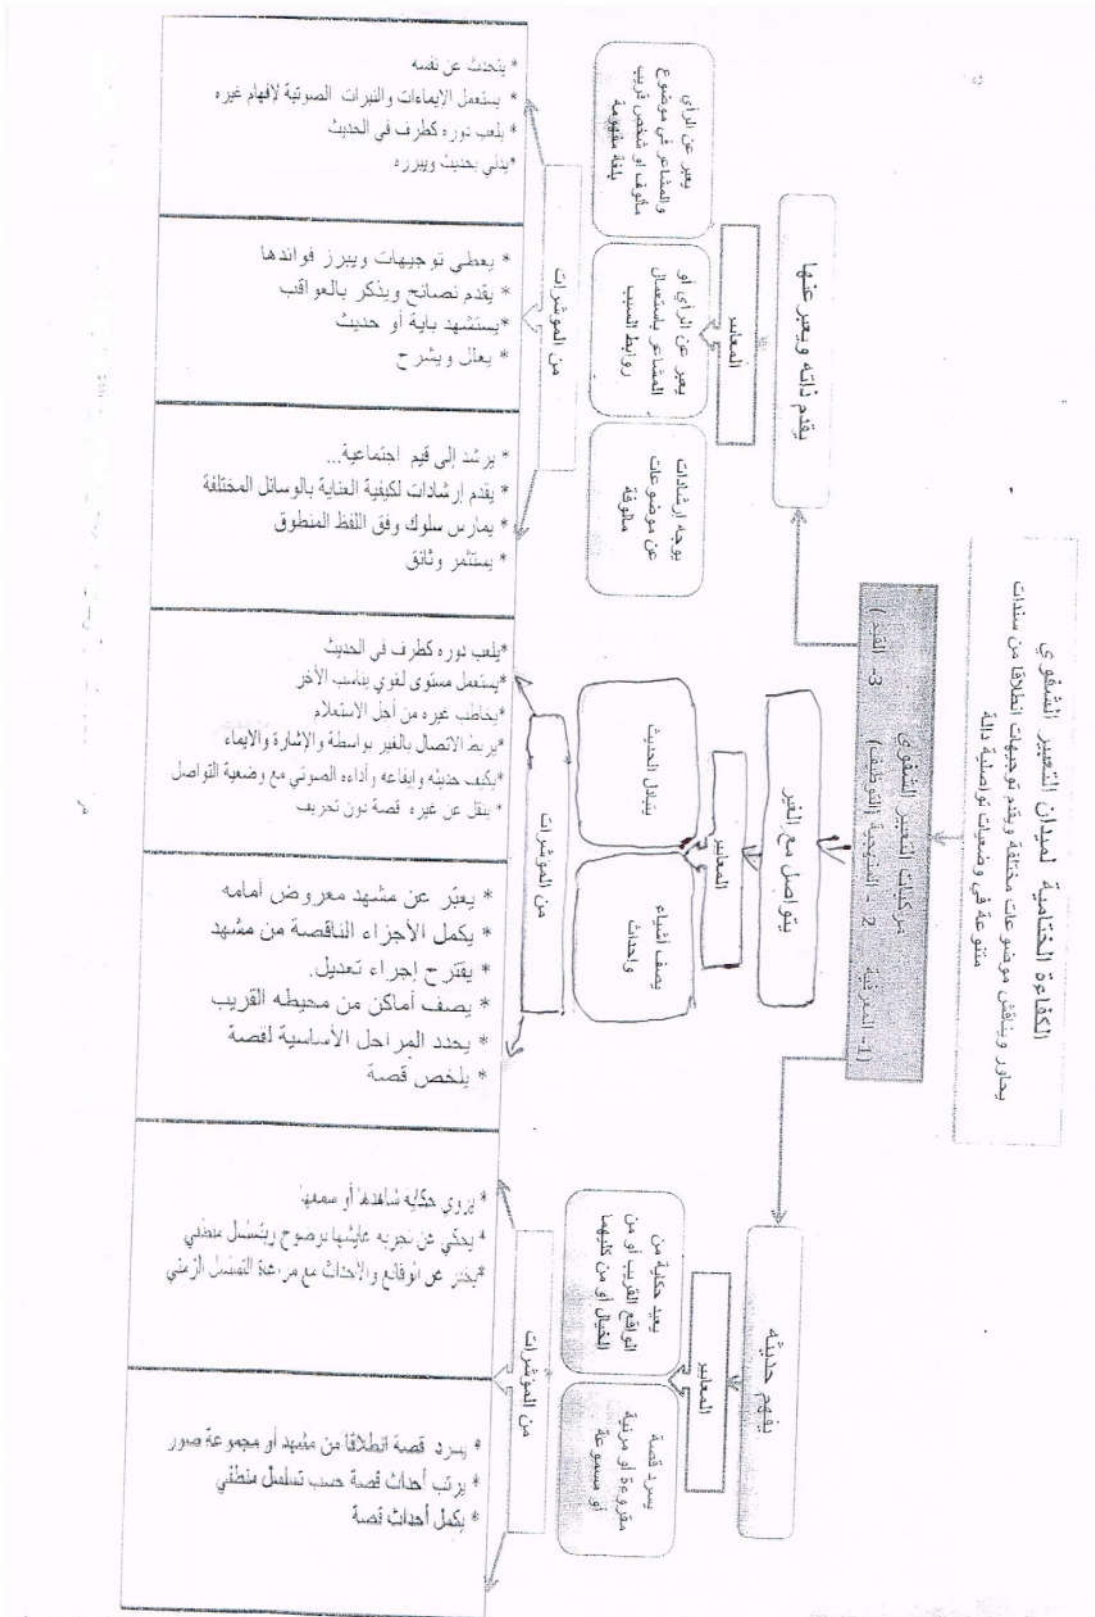 الكفاءة الختامية لميدان التعبير الشفوي
يحاور ويناقش موضوعات مختلفة ويقدم توجيهات انطلاقا من سندات
متنوعة في وضعيات تواصلية دالة
مركبات التعبير الشفوي
(1- المعرفية 2 - المنهجية (التوظيف) 3- القيم)
يقدم ذاته ويعبر عنها
المعايير
يعبر عن الرأي
والمشاعر في موضوع
مألوف او شخص قريب
بلغة مفهومة
يعبر عن الرأي أو
المشاعر باستعمال
روابط السبب
يوجه إرشادات
عن موضوعات
مألوفة
من المؤشرات
* يتحدث عن نفسه
* يستعمل الايماءات والنبرات الصوتية لافهام غيره
* يلعب دوره كطرف في الحديث
*يدلي بحديث ويبرره
* يعطي توجيهات ويبرز فوائدها
* يقدم نصائح ويذكر بالعواقب
*يستشهد بآية أو حديث
* يعلل ويشرح
* يرشد إلى قيم اجتماعية...
* يقدم إرشادات لكيفية العناية بالوسائل المختلفة
* يمارس سلوك وفق اللفظ المنطوق
* يستثمر وثائق
يتواصل مع الغير
المعايير
يتبادل الحديث
يصف أشياء
وأحداث
من المؤشرات
*يلعب دوره كطرف في الحديث
*يستعمل مستوى لغوي يناسب الآخر
*يخاطب غيره من أجل الاستعلام
*يربط الاتصال بالغير بواسطة والإشارة والايماء
*يكيف حديثه وإيقاعه وأداءه الصوتي مع وضعية التواصل
* ينقل عن غيره قصة دون تحريف
* يعبّر عن مشهد معروض أمامه
* يكمل الأجزاء الناقصة من مشهد
* يقترح إجراء تعديل.
* يصف أماكن من محيطه القريب
* يحدد المراحل الأساسية لقصة
* يلخص قصة
يفهم حديثه
المعايير
يعيد حكاية من
الواقع القريب أو من
الخيال أو من كليهما
يسرد قصة
مقروءة أو مرئية
أو مسموعة
من المؤشرات
* يروي حكاية شاهدها أو سمعها
* يحكي عن تجربة عايشها بوضوح وبتسلسل منطقي
*يخبر عن الوقائع والأحداث مع مراعاة التسلسل الزمني
* يسرد قصة انطلاقا من مشهد أو مجموعة صور
* يرتب أحداث قصة حسب تسلسل منطقي
* يكمل أحداث قصة